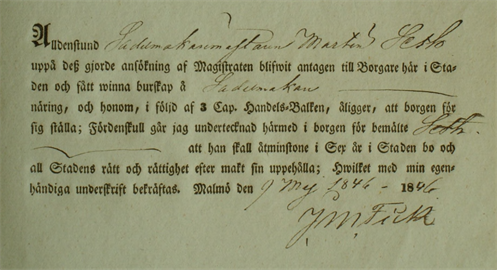 Alldenstund Sadelmakaremästaren Martin Seth
uppå deß gjorde ansökning af Magistraten blifwit antagen till Borgare här i Sta-
den och fått winna burskap å Sadelmakare
näring, och honom, i följd af 3 Cap. Handels-Balken, åligger, att borgen för
sig ställa; Fördenskull går jag undertecknad härmed i borgen för bemälte Seth
att han skall åtminstone i Sex år i Staden bo och
all Stadens rätt och rättighet efter makt sin uppehålla; Hwilket med min egen-
händiga underskrift bekräftas. Malmö den 9 Maj 1846 - 1846